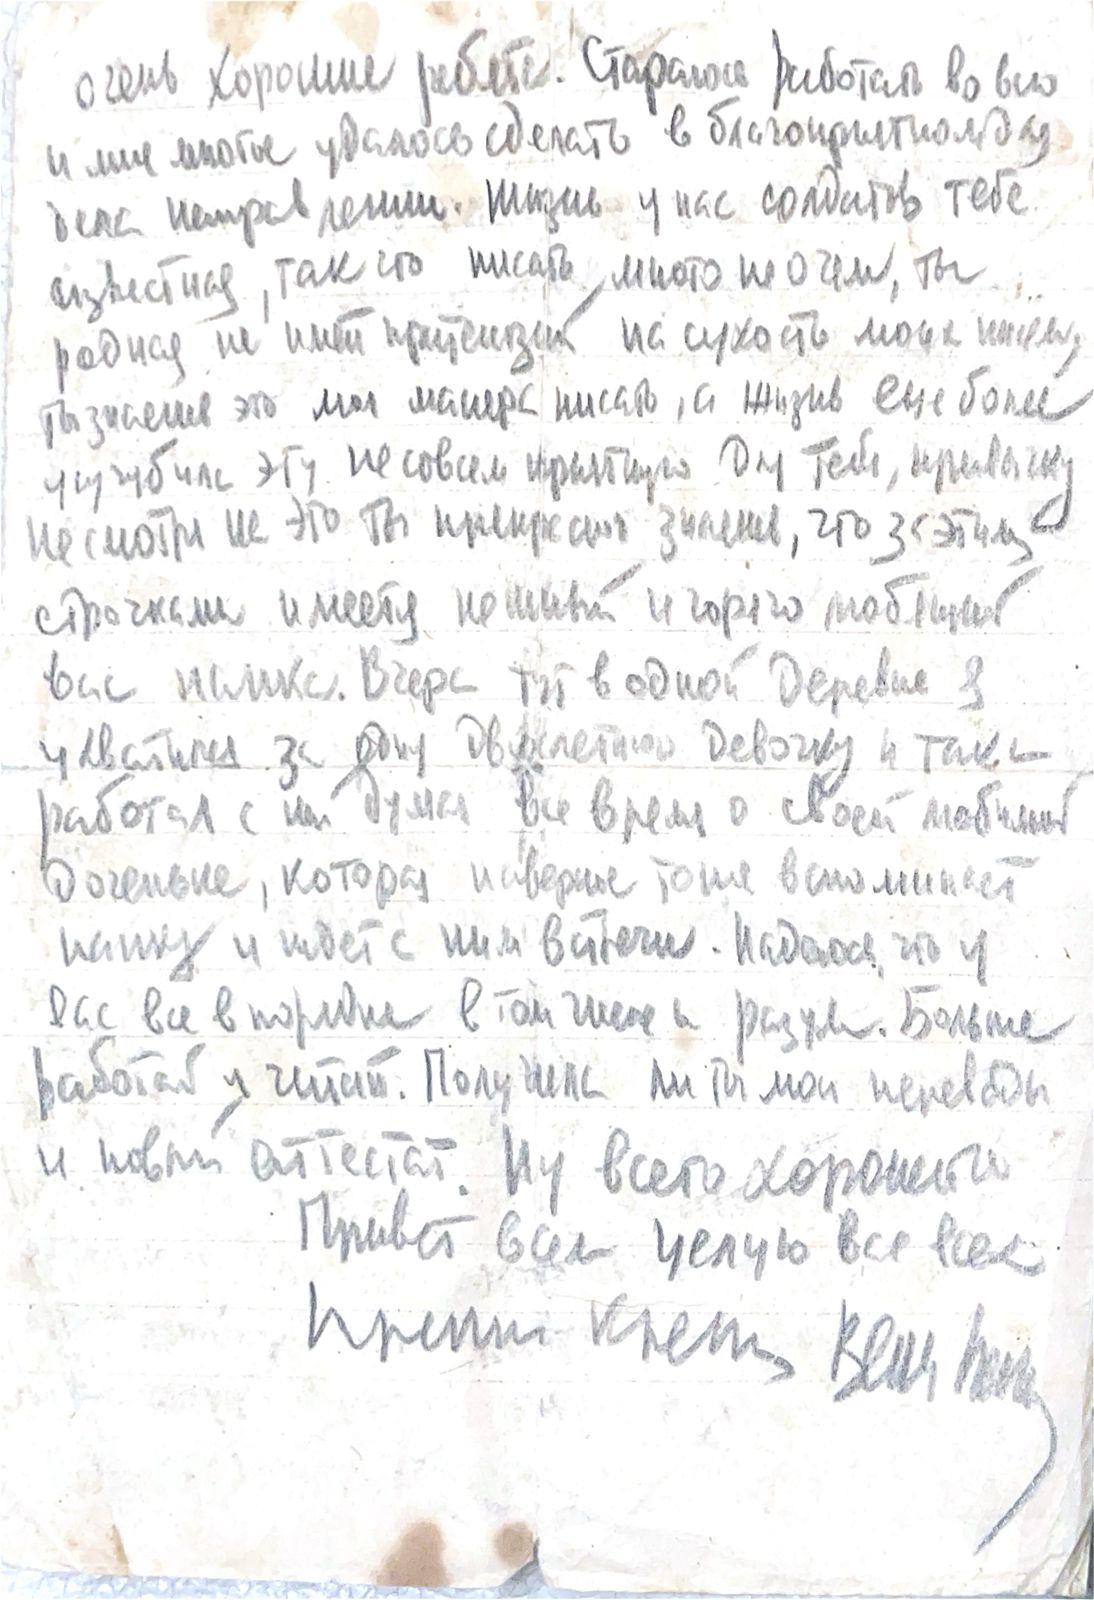 очень хорошие ребята. Стараюсь работать во всю
и мне многое удалось сделать в благоприятном для
дела направлении. Жизнь у нас солдатов тебе
известная, так что писать много не о чем, ты
родная не имей притензий на сухость моих писем,
ты знаешь это моя манера писать, а жизнь еще более
усугубила эту не совсем приятную для тебя, привычку
Несмотря на это ты прекрасно знаешь, что за этими
строчками имеется нежный и горячо любящий
вас папка. Вчера тут в одной деревне я
ухватился за одну двухлетнюю девочку и так
работал с ней думая все время о своей любимой
доченьке, которая наверное тоже вспоминает
папку и ждет с ним встречи. Надеюсь, что у
вас все в порядке в том числе и разум. Больше
работай и читай. Получила ли ты мои переводы
и новый аттестат. Ну всего хорошего
Привет всем целую вас всех
крепко крепко Ваш